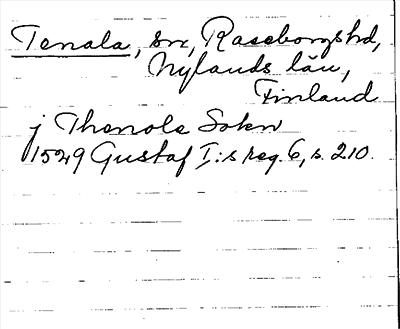 Tenala, sn, Raseborgs hd,
Nylands län,
Finland
j Thenola Sokn
1549 Gustaf I:s reg. 6, s. 210.